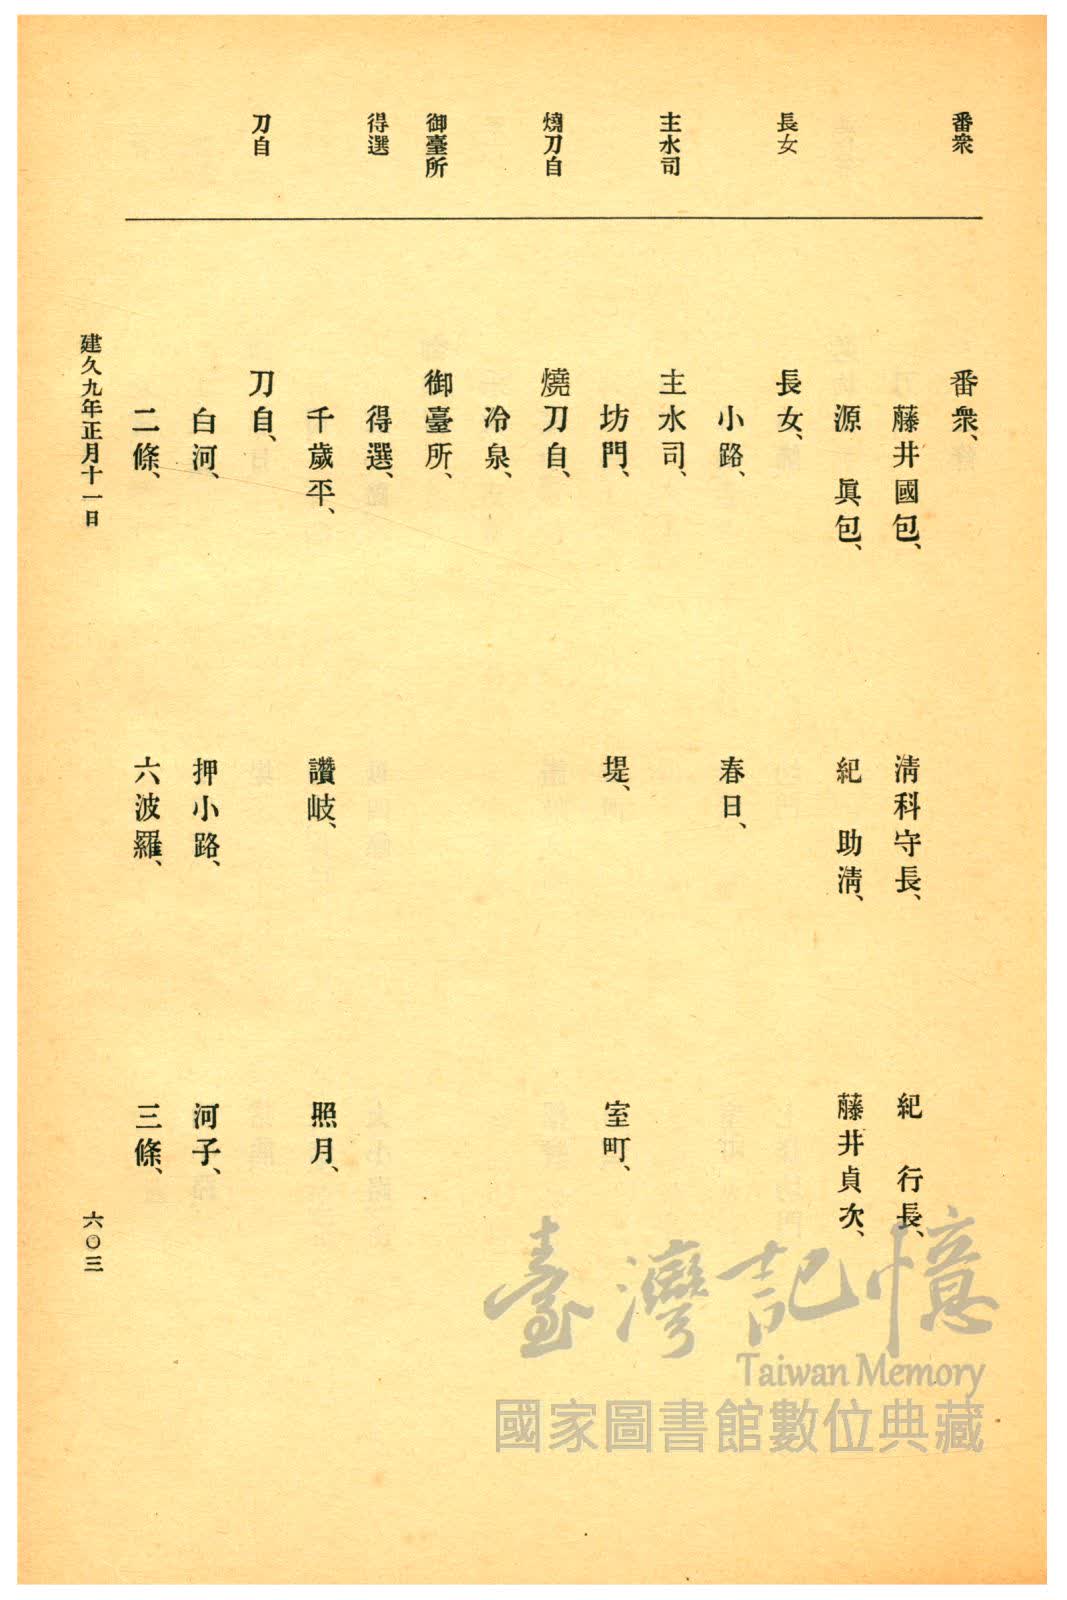 番衆
長女
主水司
燒刀自
御臺所
得選
刀自
番衆、
藤井國包、　清科守長、　紀　行長、
源　眞包、　紀　助淸、　藤井貞次、
長女、
小路、　春日、
主水司、
坊門、　堤、　室町、
燒刀自、
冷泉、
御臺所、
得選、
千歲平、　讚岐、　照月、
刀自、
白河、　押小路、　河子、
二條、　六波羅、　三條、
建久九年正月十一日
六〇三
臺灣記憶
Taiwan Memory
國家圖書館數位典藏